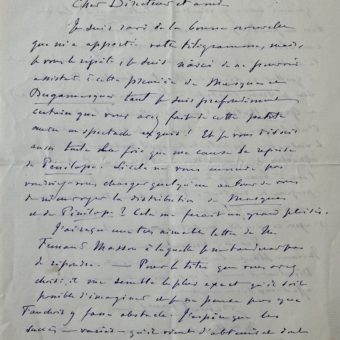 Cher Directeur et ami
Je suis ravi de la bonne nouvelle
que m'a apporté votre télégramme, mais,
je vous le répète, je suis navré de ne pouvoir
assister à cette première de Masques et
Bergamasques tant je suis profondément
certain que vous avez fait de cette petite
un spectacle exquis ! Et je vous disais
aussi toute la joie que me cause la reprise
de Pénélope. Si cela ne vous ennuie pas
voudriez-vous charger quelqu'un autour de vous
de m'envoyer la distribution de Masques
et de Pénélope ? Cela me ferait un grand plaisir.
J'ai reçu une très aimable lettre de M.
Fernand Masson à laquelle je ne tarderai pas
de répondre. — Pour le titre que vous avez
choisi, il me semble le plus exact qu'il soit
possible d'imaginer et je ne pense pas que
Fauchois y fasse obstacle. J'espère que les
succès — variés — qu'il vient d'obtenir